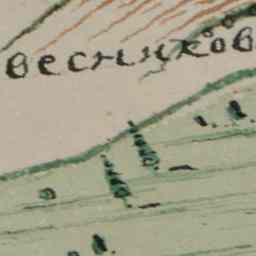 весников